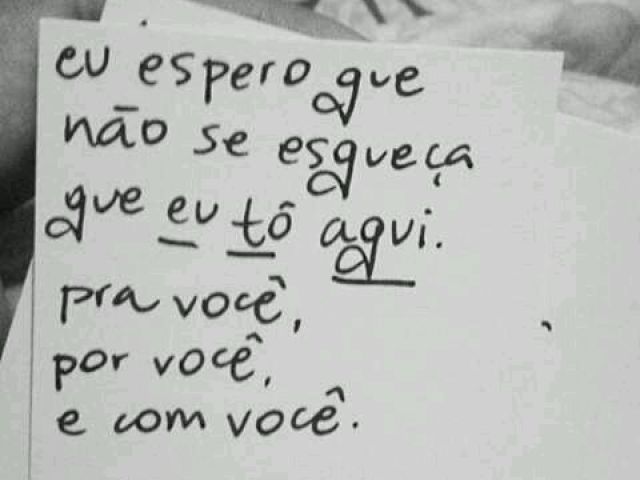 eu espero que
não se esqueça
que eu tô aqui.
pra você,
por você,
e com você.